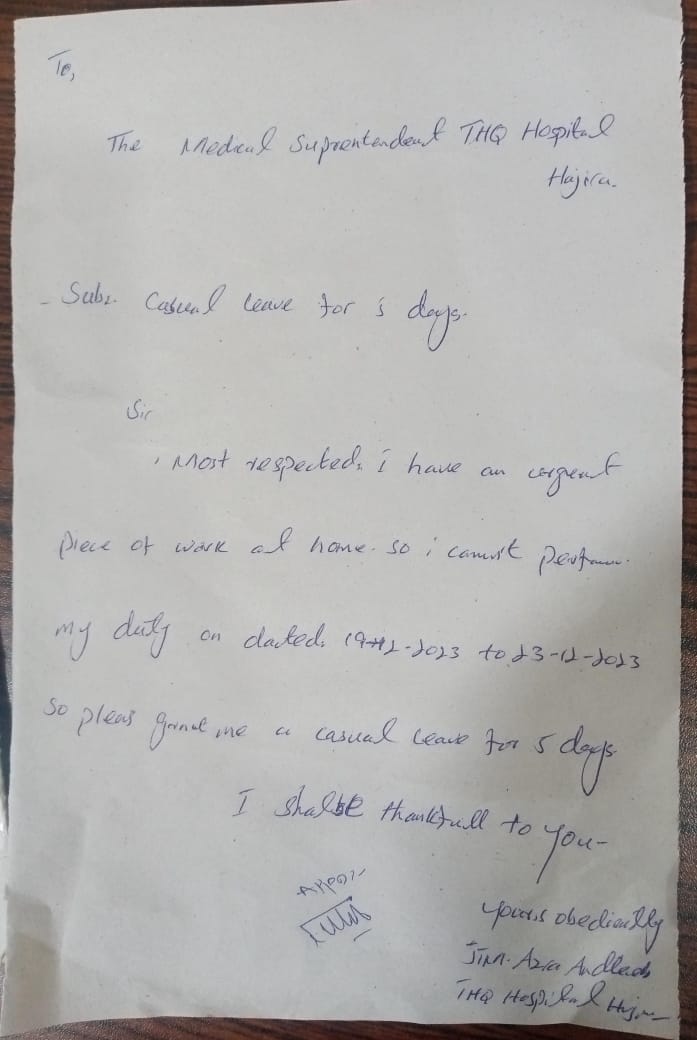 To,
The Medical Suprentendent THQ Hospital
Hajira.
Sub:- Casual leave for 5 days.
Sir
Most respected, i have an urgent
piece of work at home. so i cannot perform
my duty on dated. 19-12-2023 to 23-12-2023
So pleas grant me a casual leave for 5 days
I shall be thankfull to you-
yours obediently
Azra
THQ Hospital Hajira